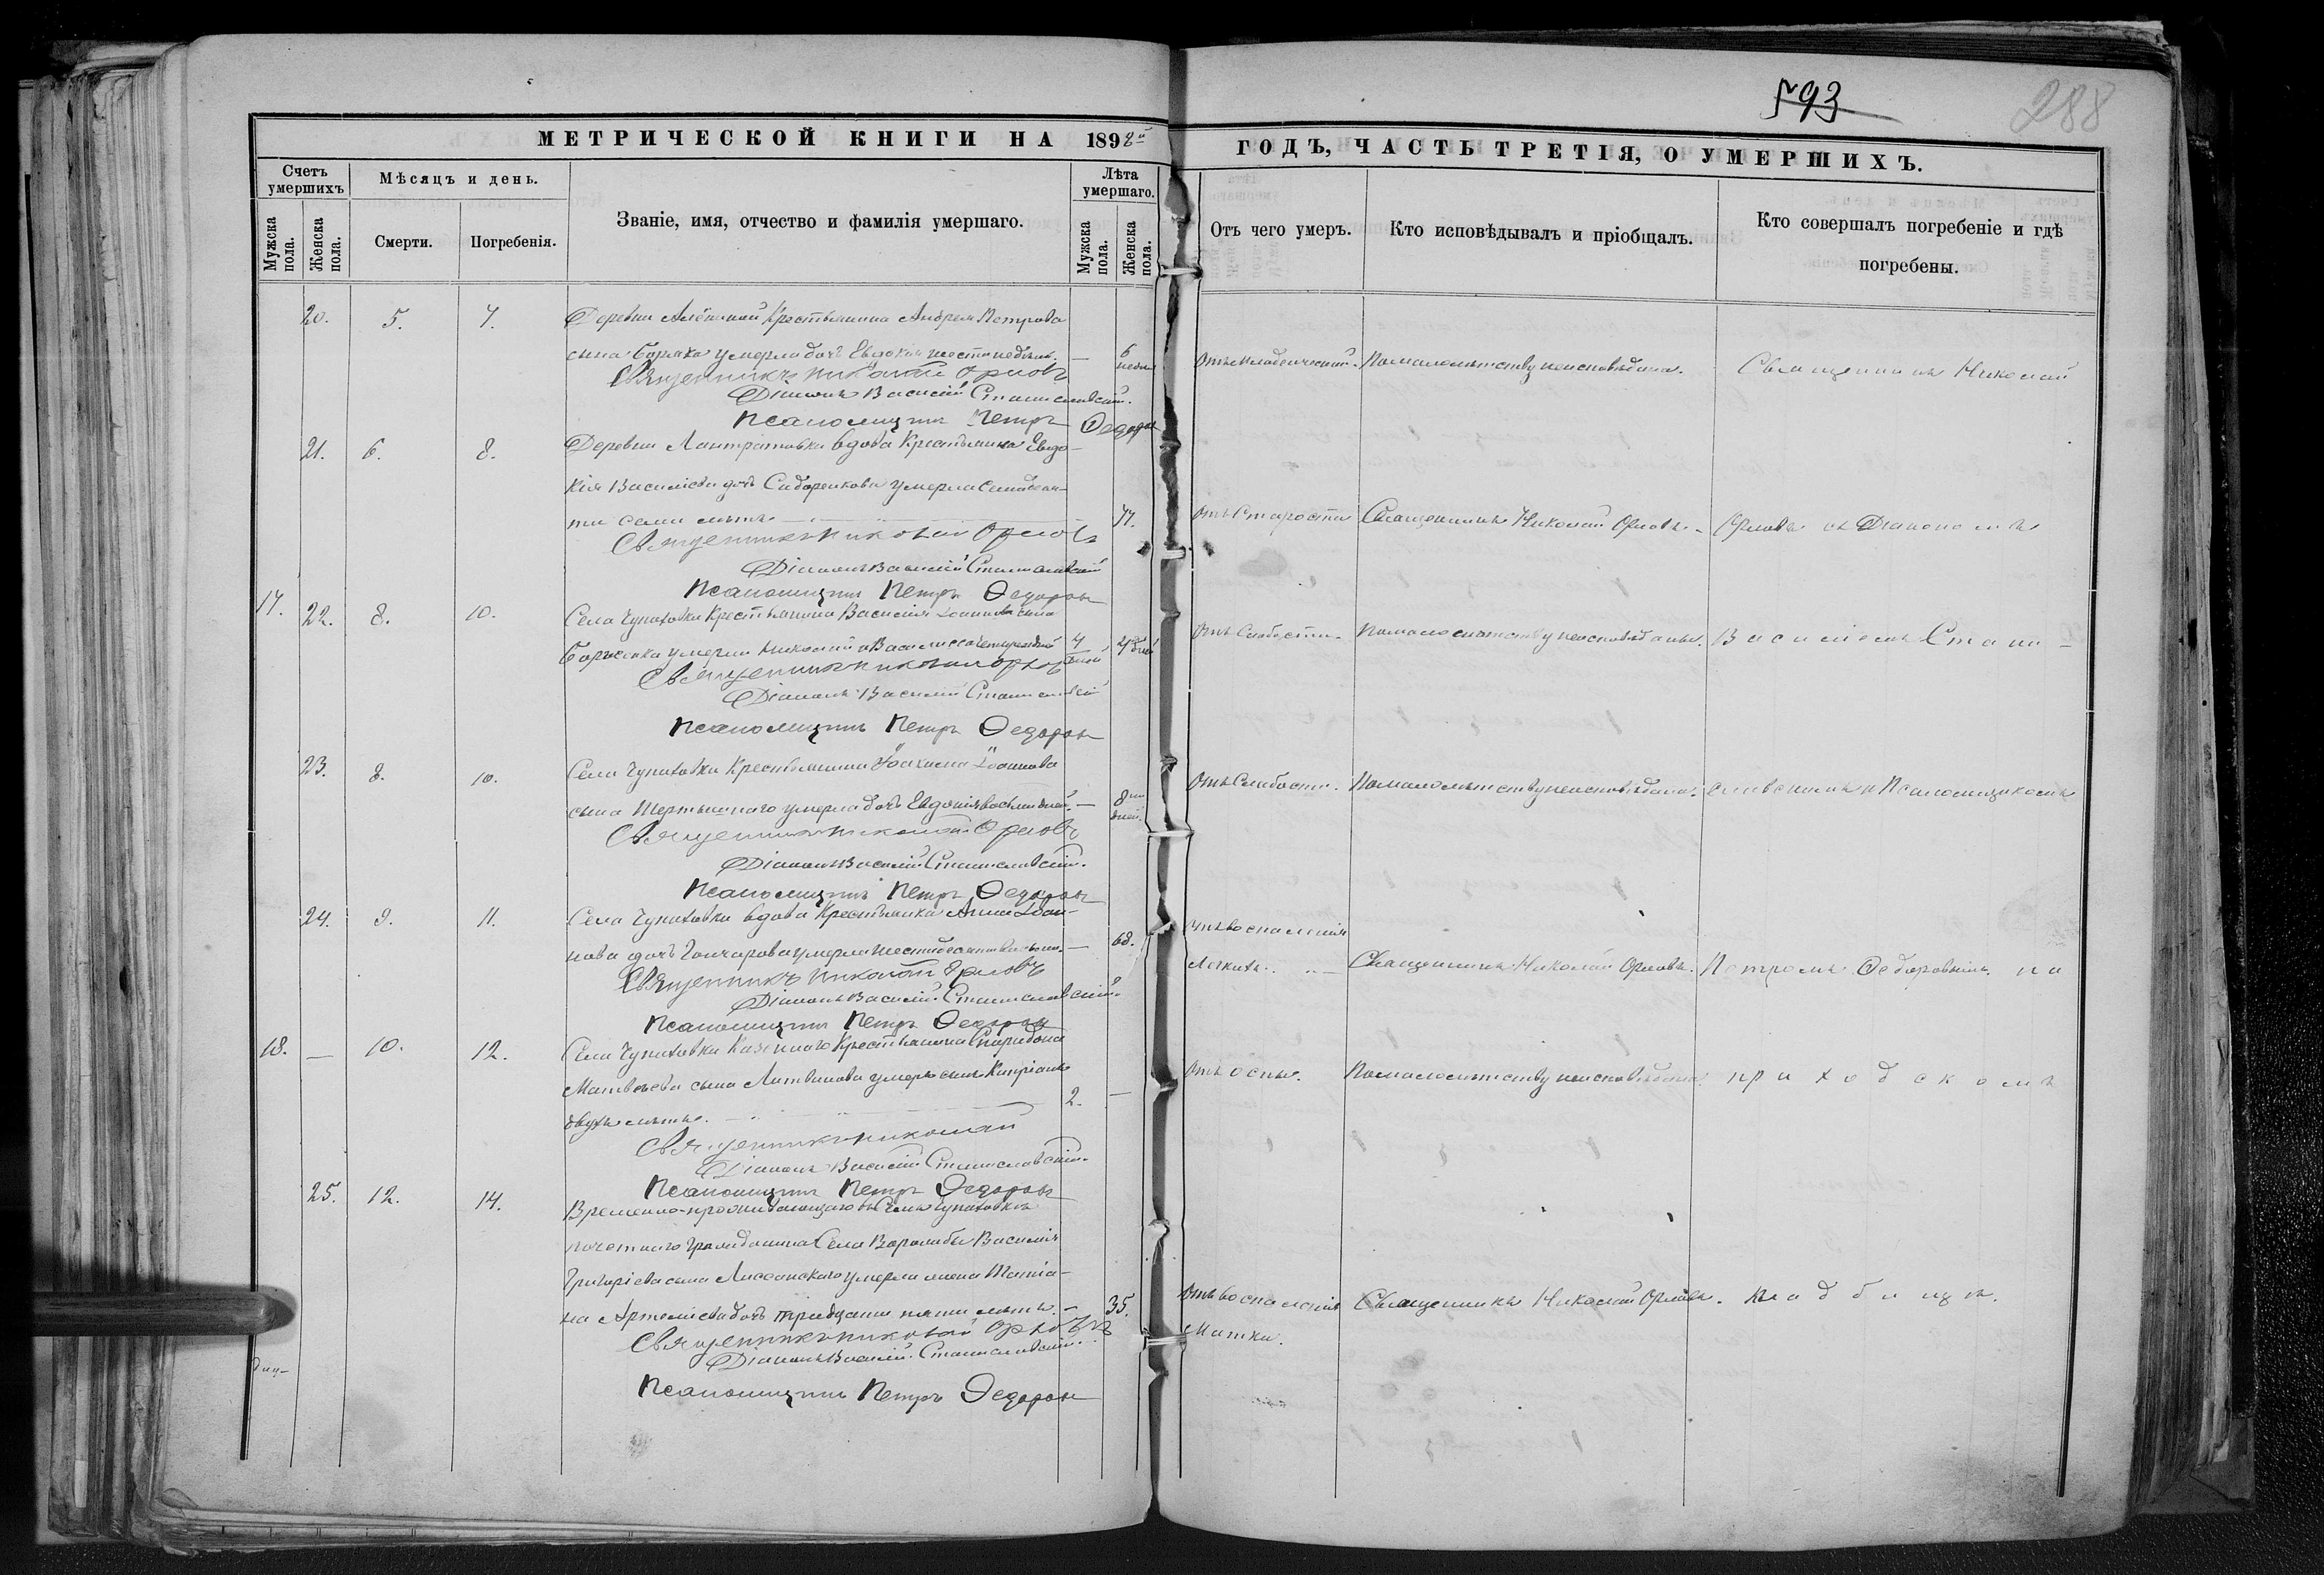 593
288
МЕТРИЧЕСКОЙ КНИГИ НА 1898й
ГОДЪ, ЧАСТЬ ТРЕТІЯ, О УМЕРШИХЪ.
Счетъ умершихъ
Мѣсяцъ и день.
Званіе, имя, отчество и фамилія умершаго.
Лѣта умершаго.
Мужска пола.
Женска пола.
Смерти.
Погребенія.
Мужска пола.
Женска пола.
Отъ чего умеръ.
Кто исповѣдывалъ и пріобщалъ.
Кто совершалъ погребеніе и гдѣ
погребены.
20. 5. 7. Деревни Крестьянина Андрея Петрова
сына умерла дочь Евдокія шести недѣль. — 6 недѣл Отъ Младенческой. По малолѣтству неисповѣдана. Священникъ Николай
Священникъ Николай Орловъ
Діаконъ Василій Станиславскій.
Псаломщикъ Петръ Федоров
21. 6. 8. Деревни вдова Крестьянка Евдо-
кія Василіева дочь Сидоренкова умерла семидеся-
ти семи лѣтъ 77. Отъ Старости Священникъ Николай Орловъ. Орловъ съ Діакономъ
Священникъ Николай Орловъ
Діаконъ Василій Станиславскій
Псаломщикъ Петръ Федоров
17. 22. 8. 10. Села Чупаховки Крестьянина Василія Іоаннова сына
умерли Николай и Василисса 4 дней 4 дней Отъ Слабости. По малолѣтству неисповѣданы. Василіемъ Стани-
Священникъ Николай Орловъ
Діаконъ Василій Станиславскій
Псаломщикъ Петръ Федоров
23. 8. 10. Села Чупаховки Крестьянина Іоакима Іоаннова
сына умерла дочь Евдокія восьми дней. — 8ми дней. Отъ Слабости. По малолѣтству неисповѣдана. славскимъ и Псаломщикомъ
Священникъ Николай Орловъ
Діаконъ Василій Станиславскій.
Псаломщикъ Петръ Федоров
24. 9. 11. Села Чупаховки вдова Крестьянка Анна Іоан-
нова дочь Гончарова умерла шестидесяти восьми. — 68. Отъ воспаленія
Легкихъ. Священникъ Николай Орловъ. Петромъ Федоровымъ на
Священникъ Николай Орловъ
Діаконъ Василій Станиславскій.
Псаломщикъ Петръ Федоров
18. — 10. 12. Села Чупаховки Казеннаго Крестьянина Спиридона
Матвѣева сына Литвинова умеръ сынъ Кипріанъ
двухъ лѣтъ. 2. — Отъ оспы. По малолѣтству неисповѣданъ. приходскомъ
Священникъ Николай
Діаконъ Василій Станиславскій.
Псаломщикъ Петръ Федоров
25. 12. 14. Временно-проживающаго въ Селѣ Чупаховкѣ
почетнаго Гражданина Села Ворожбы Василія
Григоріева сына умерла жена Татіа-
на Артеміева дочь тридцати пяти лѣтъ. — 35. Отъ воспаленія Священникъ Николай Орловъ. кладбищѣ.
Матки.
Священникъ Николай Орловъ
Діаконъ Василій Станиславскій.
Псаломщикъ Петръ Федоров